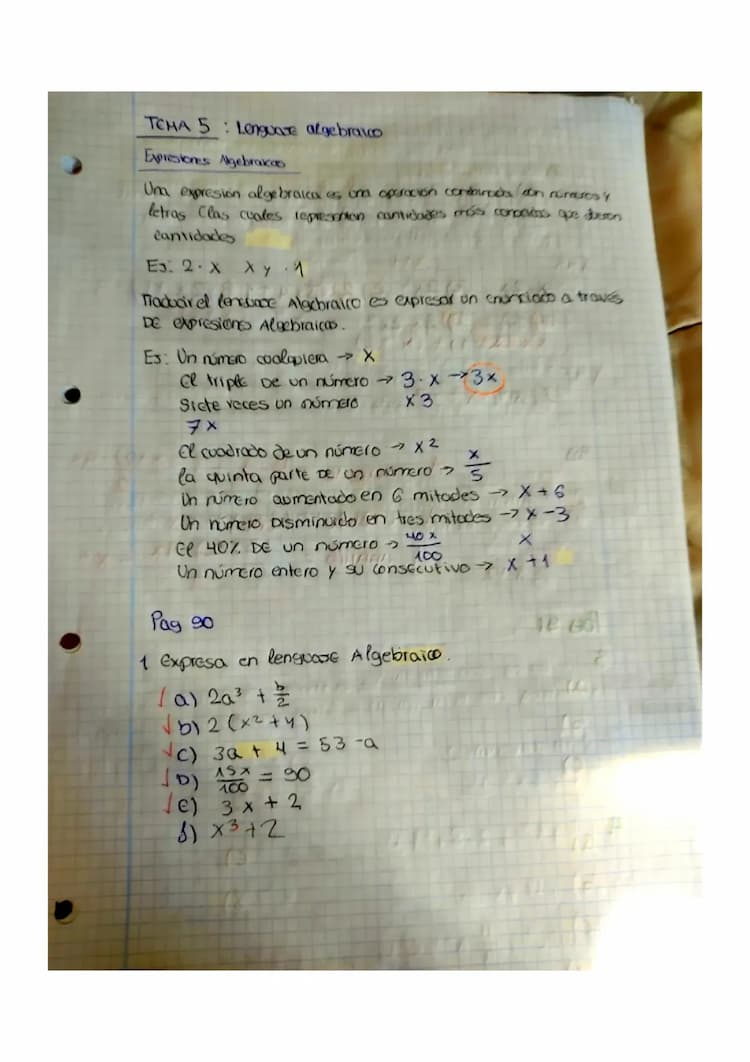 TEMA 5 : Lenguaje algebraico
Expresiones Algebraicas
Una expresión algebraica es una operación combinada con números y
letras (las cuales representan cantidades más que
cantidades
Ej: 2 · x x y · 1
Traducir el lenguaje Algebraico es expresar un enunciado a través
DE expresiones Algebraicas.
Ej: Un número cualquiera → x
El triple DE un número → 3 · x → 3x
Siete veces un número x 3
7x
El cuadrado de un número → x²
la quinta parte DE un número → x/5
Un número aumentado en 6 mitades → x + 6
Un número Disminuido en tres mitades → x - 3
El 40% DE un número → 40x/100 x
Un número entero y su consecutivo → x + 1
Pag 90
1 Expresa en lenguaje Algebraico.
a) 2a³ + b/2
b) 2 (x² + y)
c) 3a + 4 = 53 - a
D) 15x/100 = 90
e) 3x + 2
f) x³ + 2